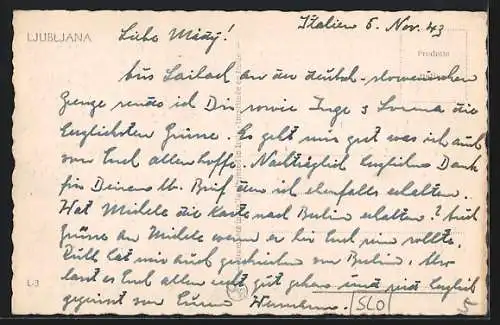 LJUBLJANA
Italien 6. Nov. 43
Liebe Mady!
Aus Laibach an der deutsch-slowenischen
Grenze sende ich Dir sowie Inge & Lorena die
herzlichsten Grüsse. Es geht mir gut was ich auch
von Euch allen hoffe. Nachträglich herzlichen Dank
für Deinen lb. Brief den ich ebenfalls erhalten.
Hat Michele die Karte nach Berlin erhalten? Auch
Grüsse an Michele wenn er bei Euch sein sollte.
hat mir auch geschrieben von Berlin.
lasst es Euch allen recht gut gehen und seid herzlich
gegrüsst von Eurem Hermann.
SLO
L-3